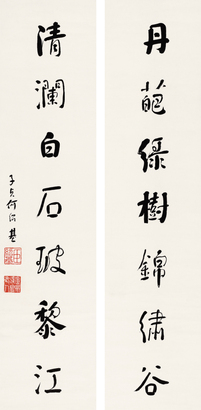 丹葩綠樹錦繡谷
清瀾白石玻黎江
子貞何紹基